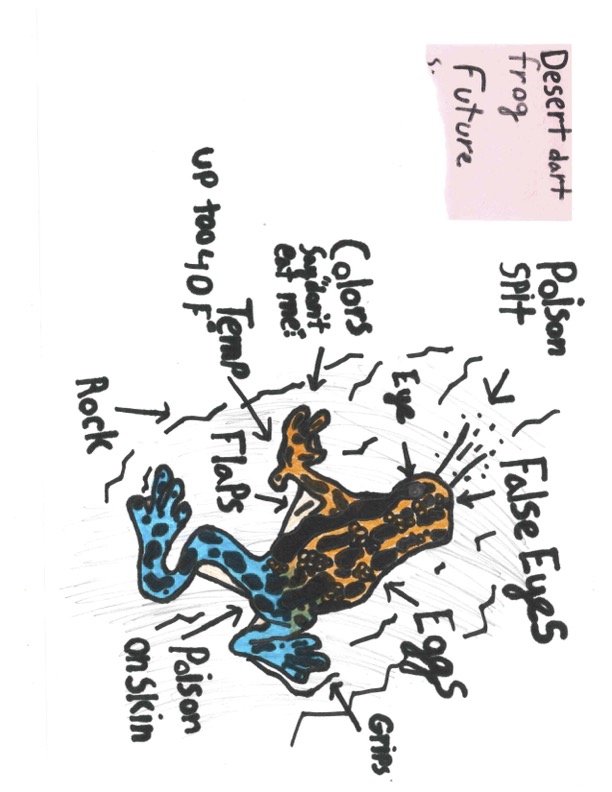 Desert dart
frog
Future
s.
Poison
spit
False Eyes
Eggs
Eye
Grips
Colors
say "don't
eat me!"
Temp
up too 40 F
Flaps
Poison
on skin
Rock